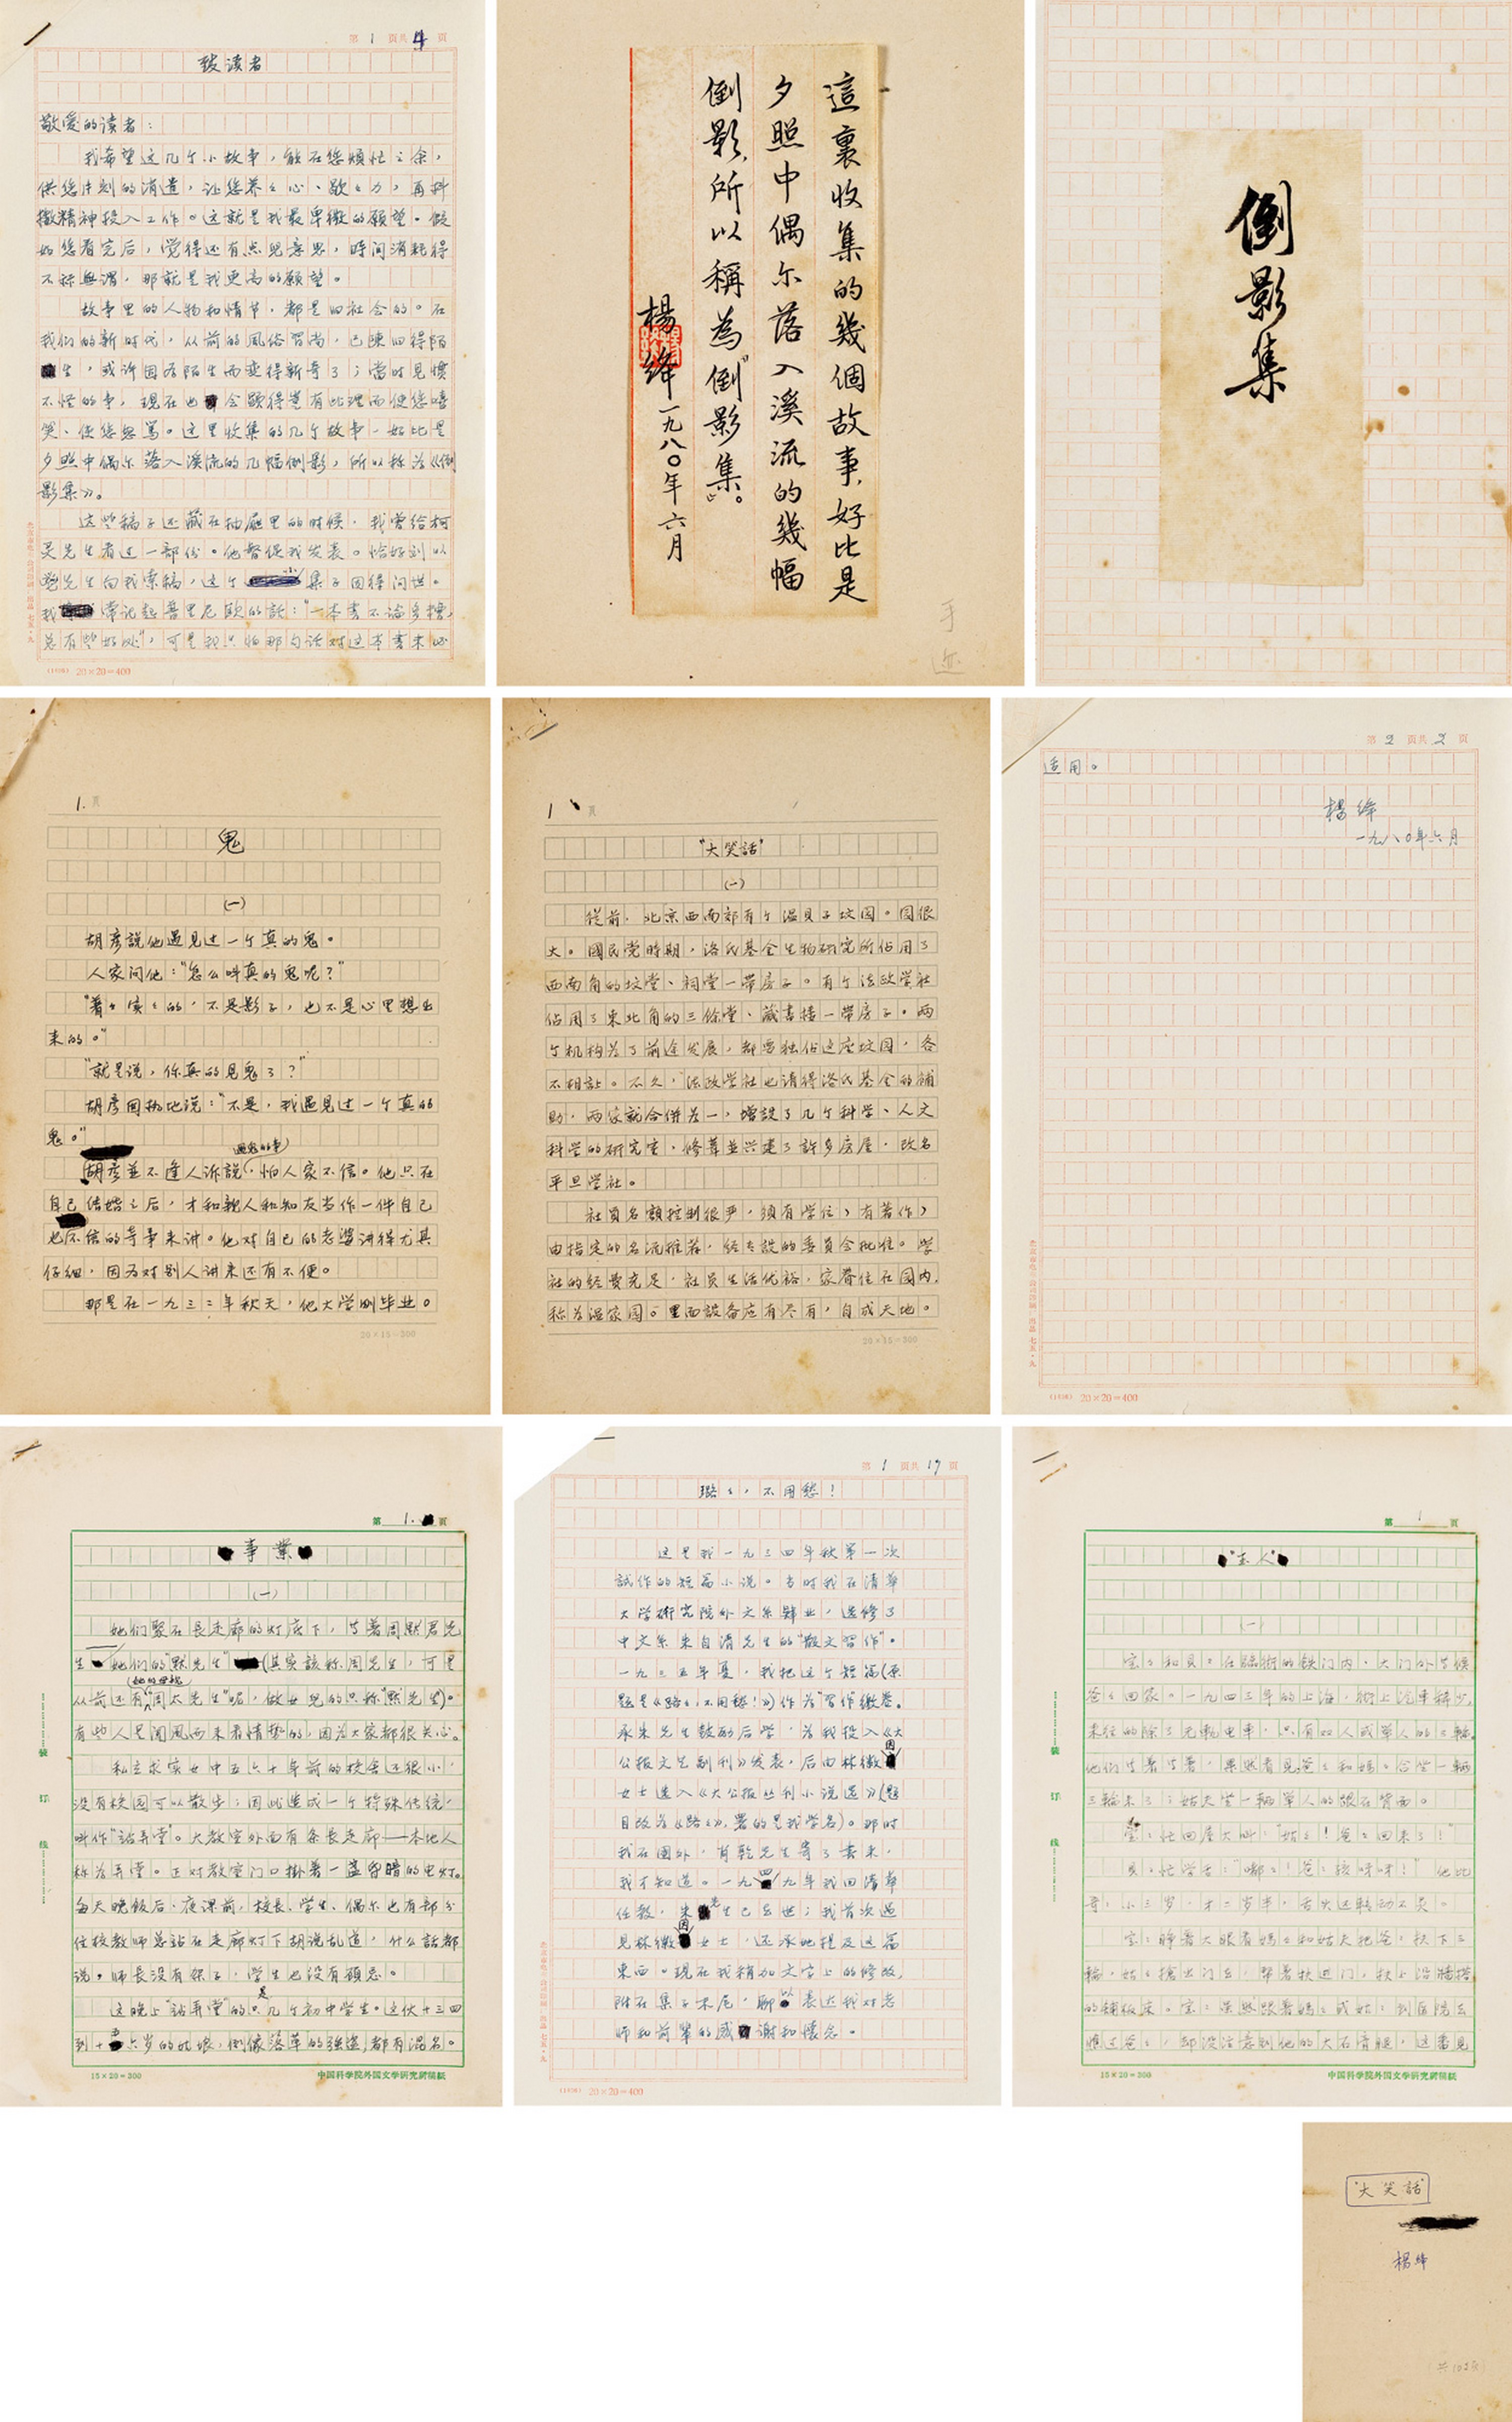 第 1 页共 4 页
致读者
敬爱的读者：
我希望这几个小故事，能在您烦忙之余，
供您片刻的消遣，让您养养心、歇歇力，再抖
擞精神投入工作。这就是我最卑微的愿望。假
如您看完后，觉得还有点儿意思，时间消耗得
不称無谓，那就是我更高的愿望。
故事里的人物和情节，都是旧社会的。在
我们的新时代，从前的風俗習尚，已陳旧得陌
生，或许因为陌生而变得新奇了；當时見慣
不怪的事，现在也会顕得豈有此理而使您嘻
笑、使您怒骂。这里收集的几个故事，好比是
夕照中偶尔落入溪流的几幅倒影，所以称为《倒
影集》。
这些稿子还藏在抽屉里的时候，我曾给柯
灵先生看过一部份。他督促我发表。恰好刘以
鬯先生向我索稿，这个小集子因得问世。
我常记起普里尼欧的話：“一本書不論多糟，
总有些好处”，可是我只怕那句话对这本書未必
(1628) 20×20=400
這裏收集的幾個故事，好比是
夕照中偶尔落入溪流的幾幅
倒影，所以稱為“倒影集”。
楊絳 一九八〇年六月
手迹
倒影集
1. 页
鬼
(一)
胡彦說他遇見过一个真的鬼。
人家问他：“怎么叫真的鬼呢？”
“着着实实的，不是影子，也不是心里想出
来的。”
“就是说，你真的见鬼了？”
胡彦固执地说：“不是，我遇见过一个真的
鬼。”
胡彦並不逢人诉說遇鬼的事，怕人家不信。他只在
自己结婚之后，才和親人和知友当作一件自己
也不信的奇事来讲。他对自己的老婆讲得尤其
仔细，因为对别人讲来还有不便。
那是在一九三三年秋天，他大学刚毕业。
20×15=300
1 页
“大笑話”
(一)
從前，北京西南郊有个温貝子坟园。园很
大。國民党时期，洛氏基金生物研究所佔用了
西南角的坟堂、祠堂一带房子。有个法政学社
佔用了東北角的三餘堂、藏書楼一帶房子。两
个机构为了前途发展，都要独佔这座坟园，各
不相讓。不久，法政学社也请得洛氏基金的補
助，两家就合併为一，增設了几个科学、人文
科学的研究室，修葺並兴建了許多房屋，改名
平旦学社。
社員名額控制很严，須有学位，有著作，
由指定的名流推荐，经专設的委員会批准。学
社的经费充足，社員生活优裕，家眷住在园内，
称为温家园。里面設备应有尽有，自成天地。
20×15=300
第 2 页共 2 页
适用。
楊絳
一九八〇年六月
(1628) 20×20=400
第 1. 页
事業
(一)
她们聚在長走廊的灯底下，等着周默君先
生 她们的“默先生”(其实該称周先生，可是
从前还有她的母親“周太先生”呢，做女兒的只称“默先生”)。
有些人是闻風而来看情势的，因为大家都很关心。
私立求实女中五六十年前的校舍还很小，
没有校园可以散步；因此造成一个特殊传统，
叫作“站弄堂”。大教室外面有条長走廊——本地人
称为弄堂。正对教室门口掛着一盏昏暗的电灯。
每天晚飯后，夜课前，校長、学生、偶尔也有部分
住校教师总站在走廊灯下胡说乱道，什么話都
说。师長没有架子，学生也没有顾忌。
这晚上“站弄堂”的只是几个初中学生。这伙十三四
到十五六岁的姑娘，倒像落草的强盗，都有混名。
15×20=300
中国科学院外国文学研究所稿紙
装 订 线
第 1 页共 19 页
璐璐，不用愁！
这是我一九三四年秋第一次
試作的短篇小说。当时我在清華
大学研究院外文系肄业，选修了
中文系朱自清先生的“散文習作”。
一九三五年夏，我把这个短篇(原
题是《璐璐，不用愁！》)作为“習作”繳卷。
承朱先生鼓励后学，为我投入《大
公报文艺副刊》发表，后由林徽因
女士选入《大公报丛刊小说选》(题
目改为《璐璐》，署的是我学名)。那时
我在國外，萧乾先生寄了書来，
我才知道。一九四九年我回清華
任教，朱先生已去世；我首次遇
見林徽因女士，还承她提及这篇
東西。现在我稍加文字上的修改，
附在集子末尾，聊以表达我对老
师和前輩的感謝和懷念。
(1628) 20×20=400
第 1 页
“玉人”
(一)
宝宝和貝貝在臨街的鉄门内，大门外等候
爸爸回家。一九四三年的上海，街上汽車稀少，
来往的除了无軌电車，只有双人或單人的三輪。
他们等着等着，果然看見爸爸和媽媽合坐一輛
三輪来了；姑夫坐一輛單人的跟在背面。
宝宝忙回屋大叫：“姑姑！爸爸回来了！”
貝貝忙学舌：“嘟嘟！爸爸孩呀呀！”他比
哥哥小三岁，才二岁半，舌头还転动不灵。
宝宝睁着大眼看媽媽和姑夫把爸爸扶下三
輪，姑姑搶出门去，幫着扶进门，扶上沿牆搭
的鋪板床。宝宝虽然跟着媽媽或姑姑到医院去
瞧过爸爸，却没注意到他的大石膏腿，这番見
15×20=300
中国科学院外国文学研究所稿紙
装 订 线
“大笑話”
楊絳